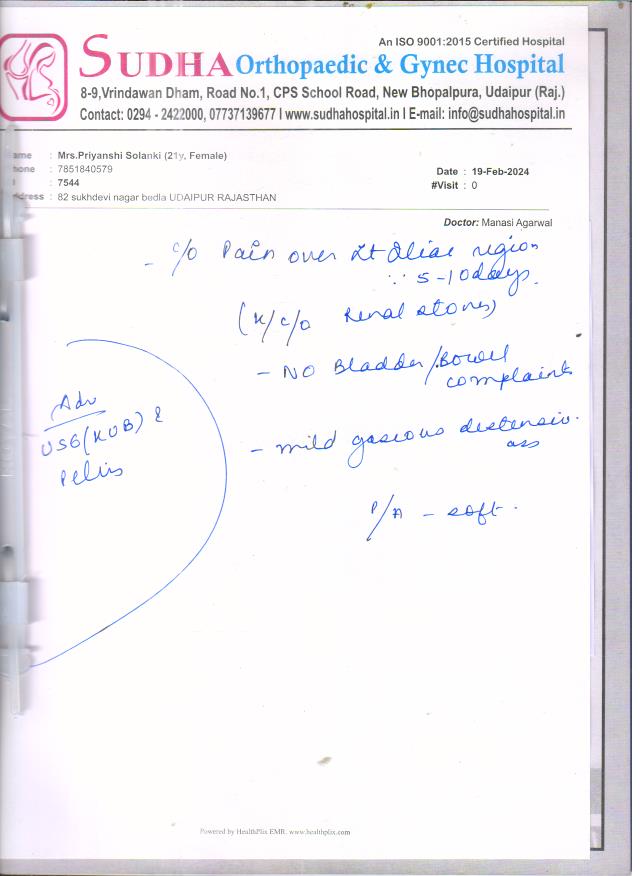 An ISO 9001:2015 Certified Hospital
SUDHA Orthopaedic & Gynec Hospital
8-9,Vrindawan Dham, Road No.1, CPS School Road, New Bhopalpura, Udaipur (Raj.)
Contact: 0294 - 2422000, 07737139677 I www.sudhahospital.in I E-mail: info@sudhahospital.in
ame : Mrs.Priyanshi Solanki (21y, Female)
hone : 7851840579
Date : 19-Feb-2024
: 7544
#Visit : 0
dress : 82 sukhdevi nagar bedla UDAIPUR RAJASTHAN
Doctor: Manasi Agarwal
- c/o Pain over Lt Iliac region
∵ 5-10 days.
(K/c/o Renal stones)
- NO Bladder/Bowel
complaints
Adv
USG (KUB) &
Pelvis
- mild gaseous distension.
P/A - soft.
Powered by HealthPlix EMR. www.healthplix.com